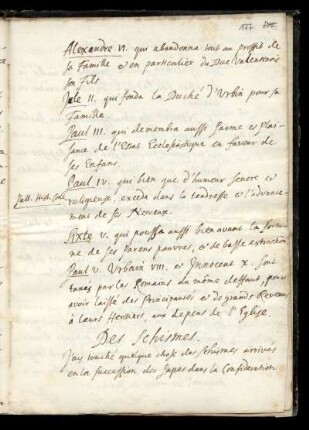 Alexandre VI. qui abandonna tout au profit de
sa Famille & en particulier du Duc Valentinois
son Fils.
Jule II. qui fonda la Duché d'Urbin pour sa
Famille.
Paul III. qui demembra aussi Parme & Plai-
sance de l'Estat Ecclesiastique en faveur de
ses Enfans.
Paul IV. qui bien que d'humeur severe &
religieuse, exceda dans la tendresse & l'avance-
ment de ses Neveux.
Sixte V. qui poussa aussi bien avant la fortu-
ne de ses Parens pauvres, & de basse extraction
Paul V. Urbain VIII. & Innocent X. sont
taxés par les Romains du même deffaut, pour
avoir laissé des Principautés & de grands Revenus
à leurs Heritiers, aux depens de l'Eglise.
Des Schismes.
J'ay touché quelque chose des Schismes arrivés
en la succession des Papes dans la Consideration